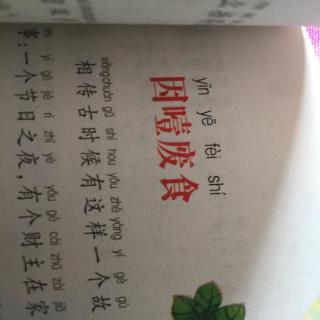 yīn yē fèi shí
因噎废食
xiāng chuán gǔ shí hou yǒu zhè yàng yí gè gù
相传古时候有这样一个故
shi yí gè jié rì zhī yè yǒu gè cái zhǔ zài jiā
事：一个节日之夜，有个财主在家